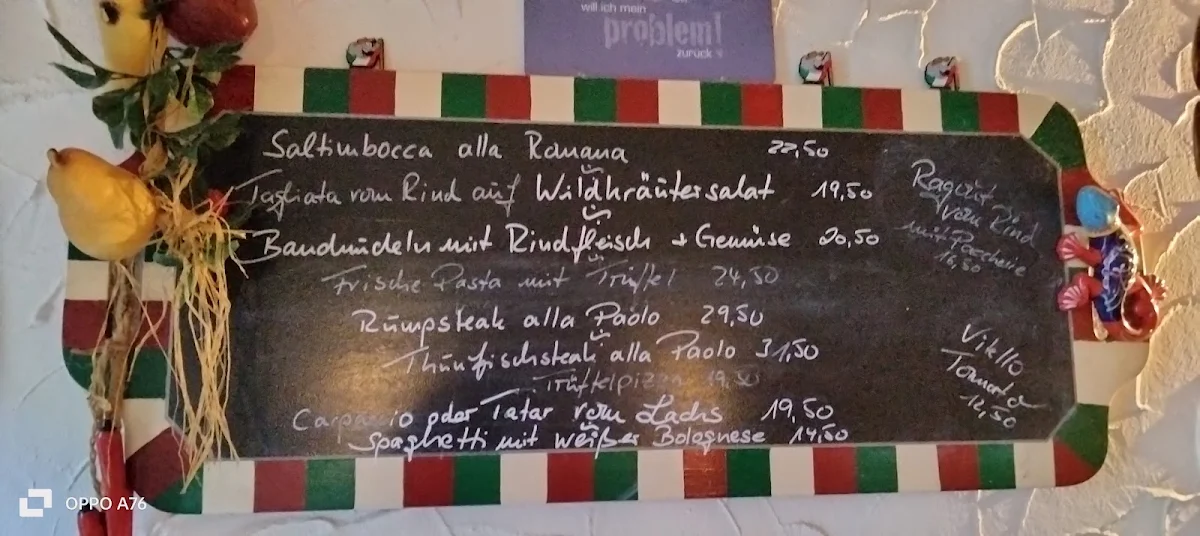 will ich mein
problem!
zurück
Saltimbocca alla Romana 22,50
Tagliata vom Rind auf Wildkräutersalat 19,50
Bandnudeln mit Rindfleisch + Gemüse 20,50
Frische Pasta mit Trüffel 24,50
Rumpsteak alla Paolo 29,50
Thunfischsteak alla Paolo 31,50
Trüffelpizza 19,50
Carpaccio oder Tatar vom Lachs 19,50
Spaghetti mit weißer Bolognese 14,50
Ragout
vom Rind
mit Paccherie
16,50
Vitello
Tonnato
12,50
OPPO A76